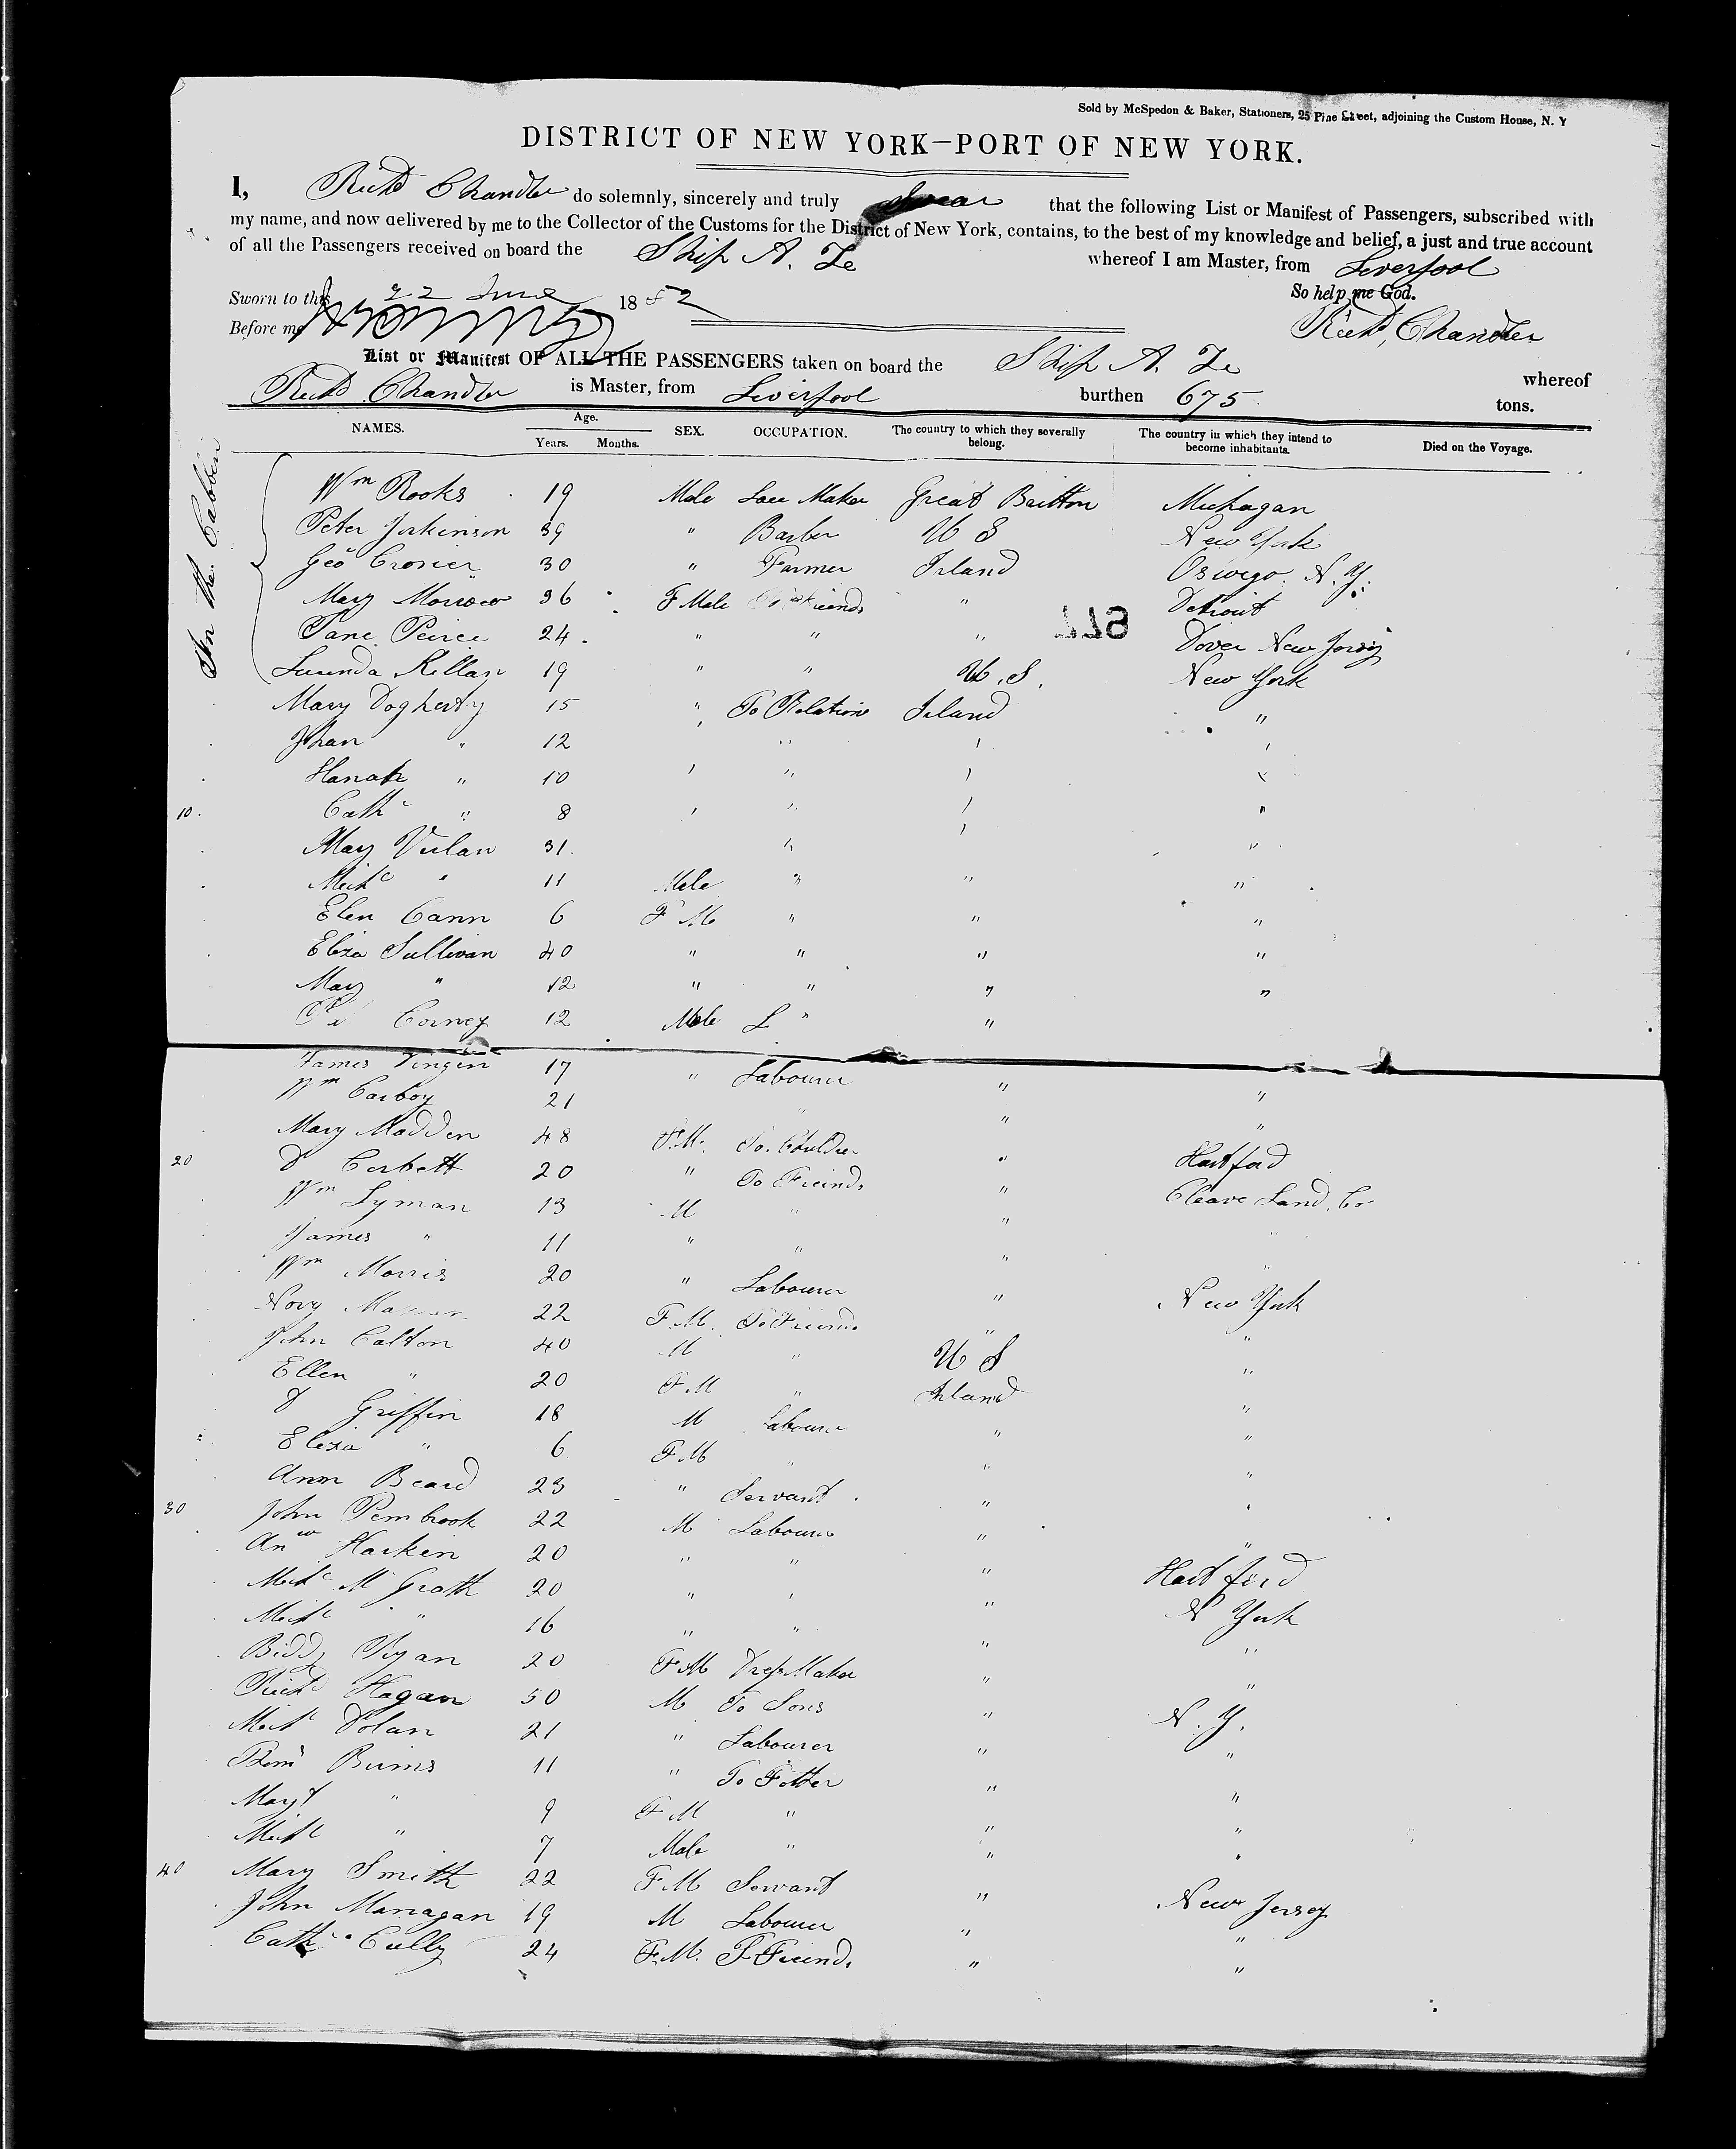 Sold by McSpedon & Baker, Stationers, 25 Pine Street, adjoining the Custom House, N. Y
DISTRICT OF NEW YORK—PORT OF NEW YORK.
I, Richd Chandler do solemnly, sincerely and truly Swear that the following List or Manifest of Passengers, subscribed with
my name, and now delivered by me to the Collector of the Customs for the District of New York, contains, to the best of my knowledge and belief, a just and true account
of all the Passengers received on board the Ship A. Z whereof I am Master, from Liverpool
Sworn to this 22 June 1852 So help me God.
Before me Richd Chandler
List or Manifest OF ALL THE PASSENGERS taken on board the Ship A. Z whereof
Richd Chandler is Master, from Liverpool burthen 675 tons.
NAMES. Age. Years. Months. SEX. OCCUPATION. The country to which they severally belong. The country in which they intend to become inhabitants. Died on the Voyage.
In the Cabbin
Wm Rooks 19 Male Lace Maker Great Britton Michagan
Peter Jorkinson 39 " Barber U S New York
Geo Crosier 30 " Farmer Irland Oswego. N. Y.
Mary 36 F Male Friends " Detroit
Jane Peirce 24 " " " Dover New Jersy
Lucinda Killan 19 " " U. S. New York
Mary Dogherty 15 " To Relations Irland "
Johan " 12 " " "
Hanah " 10 " " " "
10. Cath " 8 " " " "
Mary 31 " " "
Mich " 11 Male " " "
Elen Cann 6 F M " " "
Eliza Sullivan 40 " " " "
Mary " 12 " " " "
Corney 12 Male " "
James 17 " Labourer " "
Wm Carboy 21 " " "
Mary Madden 48 F.M. To. Childre " Hartford
20 D Corbett 20 " To Freinds " Cleave Land. Co
Wm Lyman 13 M " " "
James " 11 " " " "
Wm Morris 20 " Labourer " New York
22 F.M. To Freinds " "
John Calton 40 M " U S "
Ellen " 20 F.M " Irland "
D Griffin 18 M Labourer " "
Eliza " 6 F.M " " "
Ann Beard 23 " Servant " "
30 John Pembrook 22 M Labourer " "
Anw Harkin 20 " " " Hartford
Michl McGrath 20 " " " N York
Michl " 16 " " " "
Biddy Ryan 20 F.M Dress Maker " "
Richd Hagan 50 M To Sons " N. Y.
Michl Dolan 21 " Labourer " "
Burns 11 " To Father " "
Mary " 9 F M " " "
Michl " 7 Male " " "
40 Mary Smith 22 F M Servant " New Jersey
John Managan 19 M Labourer " "
Cath Cully 24 F.M. T Freinds " "